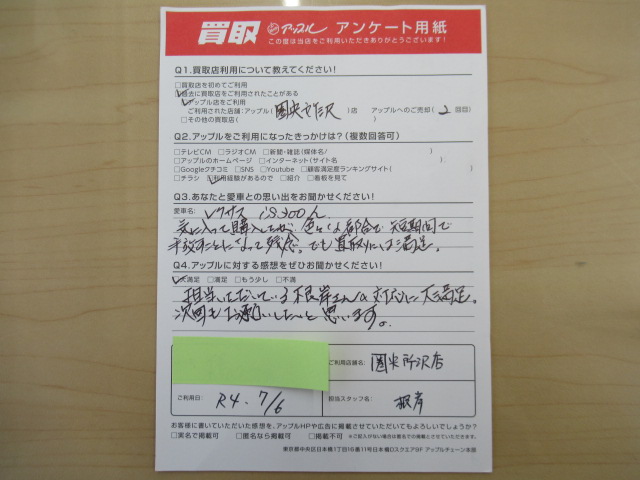 買取 アップル アンケート用紙
この度は当店をご利用いただきありがとうございます！
Q1.買取店利用について教えてください！
□買取店を初めてご利用
□過去に買取店をご利用されたことがある
□アップル店をご利用
ご利用された店舗:アップル( 圏央所沢 )店 アップルへのご売却( 2 回目)
□その他の買取店( )
Q2.アップルをご利用になったきっかけは？(複数回答可)
□テレビCM □ラジオCM □新聞・雑誌(媒体名/ )
□アップルのホームページ □インターネット(サイト名 )
□Googleクチコミ □SNS □Youtube □顧客満足度ランキングサイト( )
□チラシ □利用経験があるので □紹介 □看板を見て
Q3.あなたと愛車との思い出をお聞かせください！
愛車名: レクサス is300h
気に入って購入したが、色々と都合で、短期間で
手放すことになって残念。でも買取りには満足。
Q4.アップルに対する感想をぜひお聞かせください！
□大満足 □満足 □もう少し □不満
担当いただいている根岸さんの対応に大満足。
次回もお願いしたいと思います。
ご利用店舗名: 圏央所沢店
ご利用日: R4. 7/6 担当スタッフ名: 根岸
お客様に書いていただいた感想を、アップルHPや広告に掲載させていただいてもよろしいでしょうか？
□実名で掲載可 □匿名なら掲載可 □掲載不可 ※ご記入がない場合は匿名での掲載とさせていただきます。
東京都中央区日本橋1丁目16番11号日本橋Dスクエア9F アップルチェーン本部